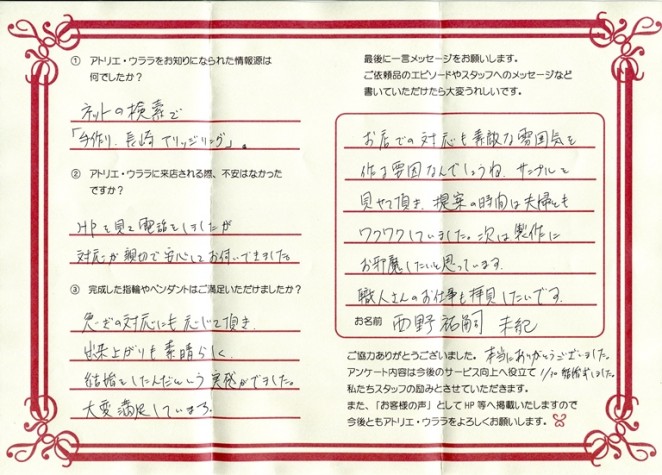 ① アトリエ・ウララをお知りになられた情報源は
何でしたか？
ネットの検索で
「手作り、長崎 マリッジリング」。
② アトリエ・ウララに来店される際、不安はなかった
ですか？
HPを見て電話をしましたが
対応が親切で安心してお伺いできました。
③ 完成した指輪やペンダントはご満足いただけましたか？
急ぎの対応にも応じて頂き、
出来上がりも素晴らしく、
結婚をしたんだという実感ができました。
大変満足しています。
最後に一言メッセージをお願いします。
ご依頼品のエピソードやスタッフへのメッセージなど
書いていただけたら大変うれしいです。
お店での対応も素敵な雰囲気を
作る要因なんでしょうね。サンプルを
見せて頂き、提案の時間は夫婦とも
ワクワクしていました。次は製作に
お邪魔したいと思っています。
職人さんのお仕事も拝見したいです。
お名前 西野 祐嗣 未紀
ご協力ありがとうございました。本当にありがとうございました。
アンケート内容は今後のサービス向上へ役立て 1/10 結婚しました。
私たちスタッフの励みとさせていただきます。
また、「お客様の声」としてHP等へ掲載いたしますので
今後ともアトリエ・ウララをよろしくお願いします。